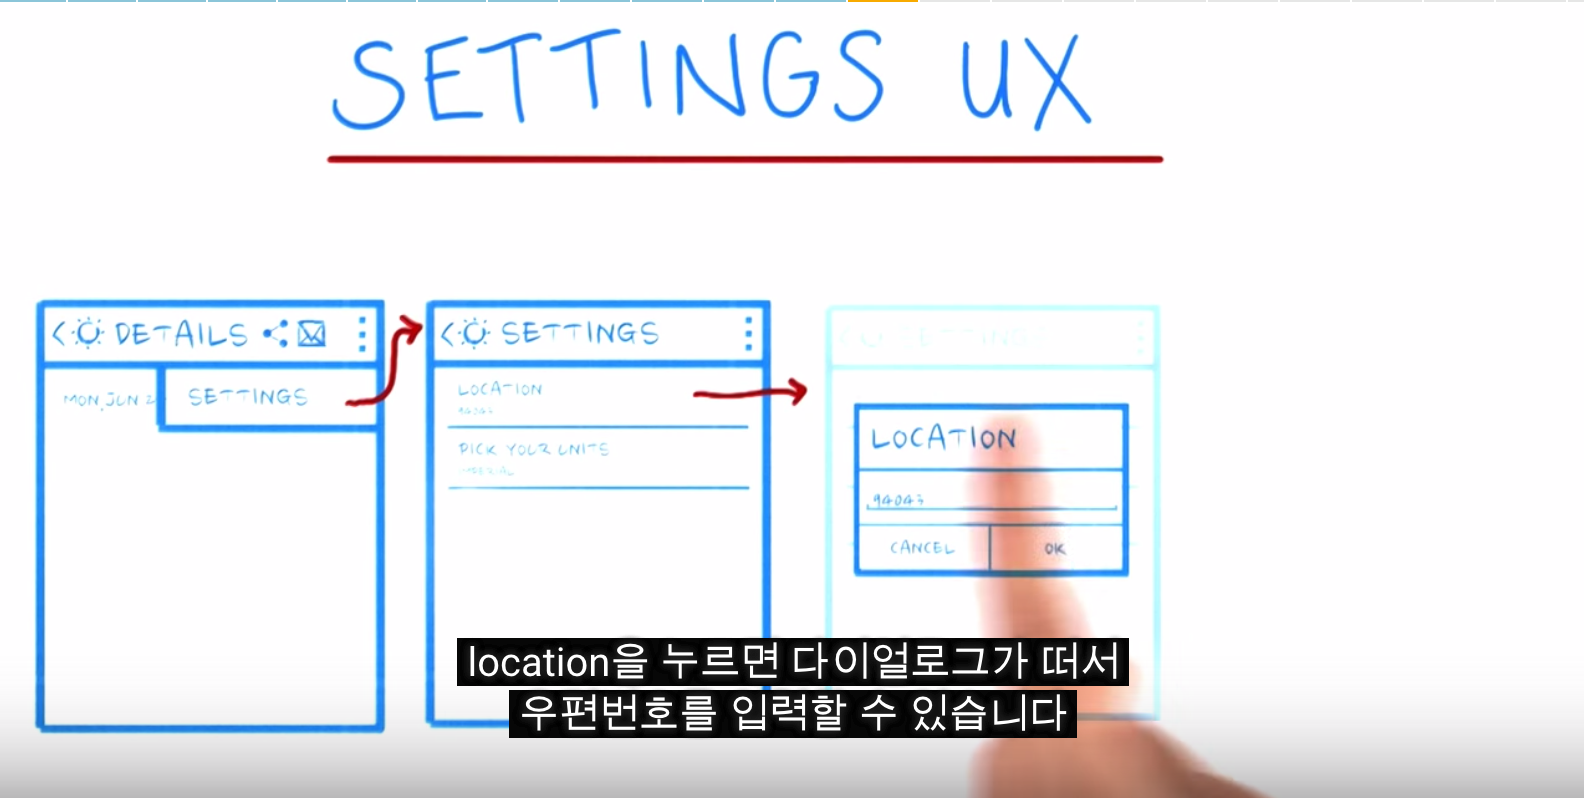 SETTINGS UX
DETAILS
MON, JUN 2
SETTINGS
SETTINGS
LOCATION
94043
PICK YOUR UNITS
IMPERIAL
LOCATION
94043
CANCEL
OK
location을 누르면 다이얼로그가 떠서
우편번호를 입력할 수 있습니다